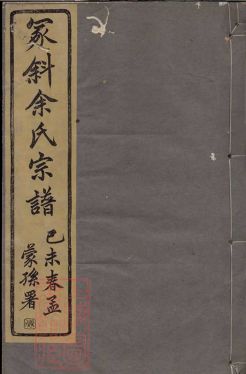 冢斜余氏宗譜
己未春孟
蒙孫署